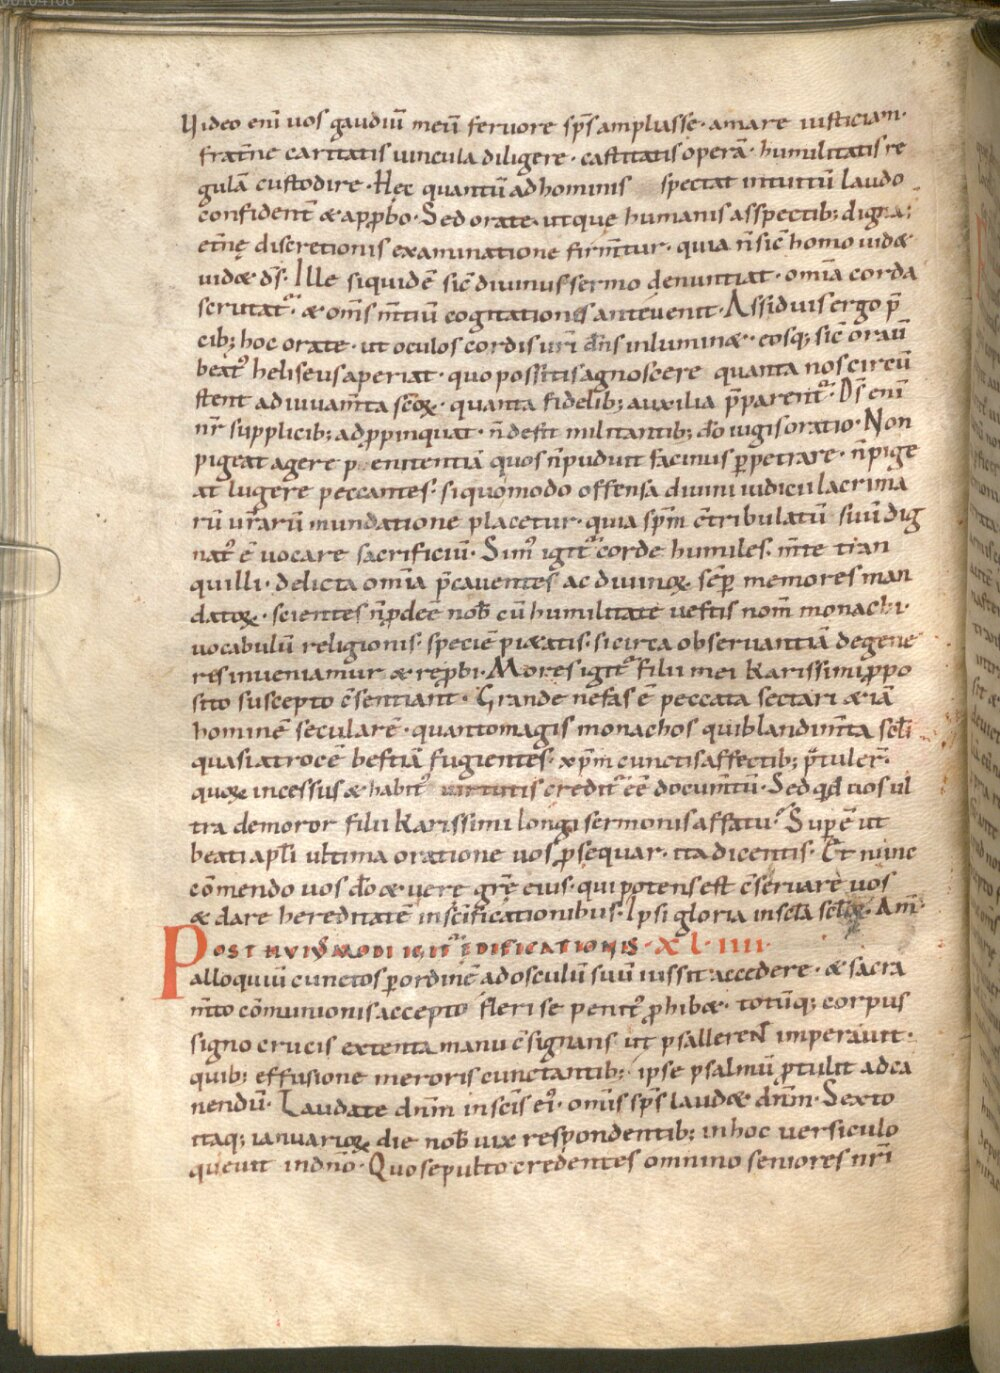 Uideo eni͞ uos gaudiu͞ meu͞ feruore sp͞s ampliasse · amare iusticiam ·
frat͞ne caritatis uincula diligere · castitatis opera͞ · humilitatis re
gula͞ custodire · Hec quantu͞ ad hominis spectat intuitu͞ laudo
confident͞ & app͞bo · Sed orate · ut que humanis asspectib; digna;
et͞ne͞ discretionis examinatione firm͞tur · quia n͞ sic͞ homo uid&
uid& d͞s · Ille siquide͞ sic͞ diuinus sermo denuntiat · om͞ia corda
scrutat᷑ · & om͞s m͞tiu͞ cogitationes anteuenit · Assiduis ergo p͞
cib; hoc orate · ut oculos cordis ur͞i d͞n͞s inlumin& · eosq; sic͞ orau͞
beat᷒ heliseus aperiat · quo possitis agnoscere quanta nos circu͞
stent adiuuam͞ta sc͞oꝝ · quanta fidelib; auxilia p͞parent᷑ · D͞s eni͞
nr͞ supplicib; adp͞pinquat · n͞ defit militantib; d͞o iugis oratio · Non
pigeat agere p enitentia͞ quos n͞ puduit facinus ꝑpetrare · n͞ pige
at lugere peccantes · si quomodo offensa diuini iudicii lacrima
ru͞ ur͞aru͞ mundatione placetur · quia sp͞m c͞tribulatu͞ suu͞ dig
nat᷒ e͞ uocare sacrificiu͞ · Sim᷒ igit᷑ corde humiles · m͞te tran
quilli · delicta om͞ia p͞cauentes ac diuinoꝝ · se͞ꝑ memores man
datoꝝ · scientes n͞ p͞dee͞ nob͞ cu͞ humilitate uestis nom͞ monachi ·
uocabulu͞ religionis · specie͞ pi&atis · si circa obseruantia͞ degene
res inueniamur & rep͞bi · Mores igit᷑ filii mei karissimi p͞po
sito suscepto c͞sentiant · Grande nefas e͞ peccata sectari & ia͞
homine͞ seculare͞ · quanto magis monachos qui blandim͞ta sec͞li
quasi atroce͞ bestia͞ fugientes · xp͞m cunctis affectib; p͞tuler͞ ·
quoꝝ incessus & habit᷒ uirtutis credit᷑ ee͞ docum͞tu͞ · Sed qd͞ uos ul
tra demoror filii karissimi longi sermonis affatu · Supe͞ ut
beati apl͞i ultima oratione uos p͞sequar · ita dicentis · Et nunc
co͞mendo uos d͞o & uere gr͞e eius · qui potens est c͞seruare uos
& dare hereditate͞ in sc͞ificationibus · Ipsi gloria in sec͞la sec͞loꝝ · Am͞ ·
POST HUIUSMODI IGIT᷑ EDIFICATIONIS · XL · IIII ·
alloquiu͞ cunctos ꝑ ordine͞ ad osculu͞ suu͞ iussit accedere · & sacra
m͞to co͞munionis accepto fleri se penit᷒ p͞hib& · totu͞q; corpus
signo crucis extenta manu c͞signans ut psallerent imperauit ·
quib; effusione meroris cunctantib; · ipse psalmu͞ p͞tulit ad ca
nendu͞ · Laudate dn͞m in sc͞is ei᷒ · omis sp͞s laud& dn͞m · Sexto
itaq; ianuarioꝝ die nob͞ uix respondentib; in hoc uersiculo
queuit in dn͞o · Quo sepulto credentes omnino seniores nr͞i